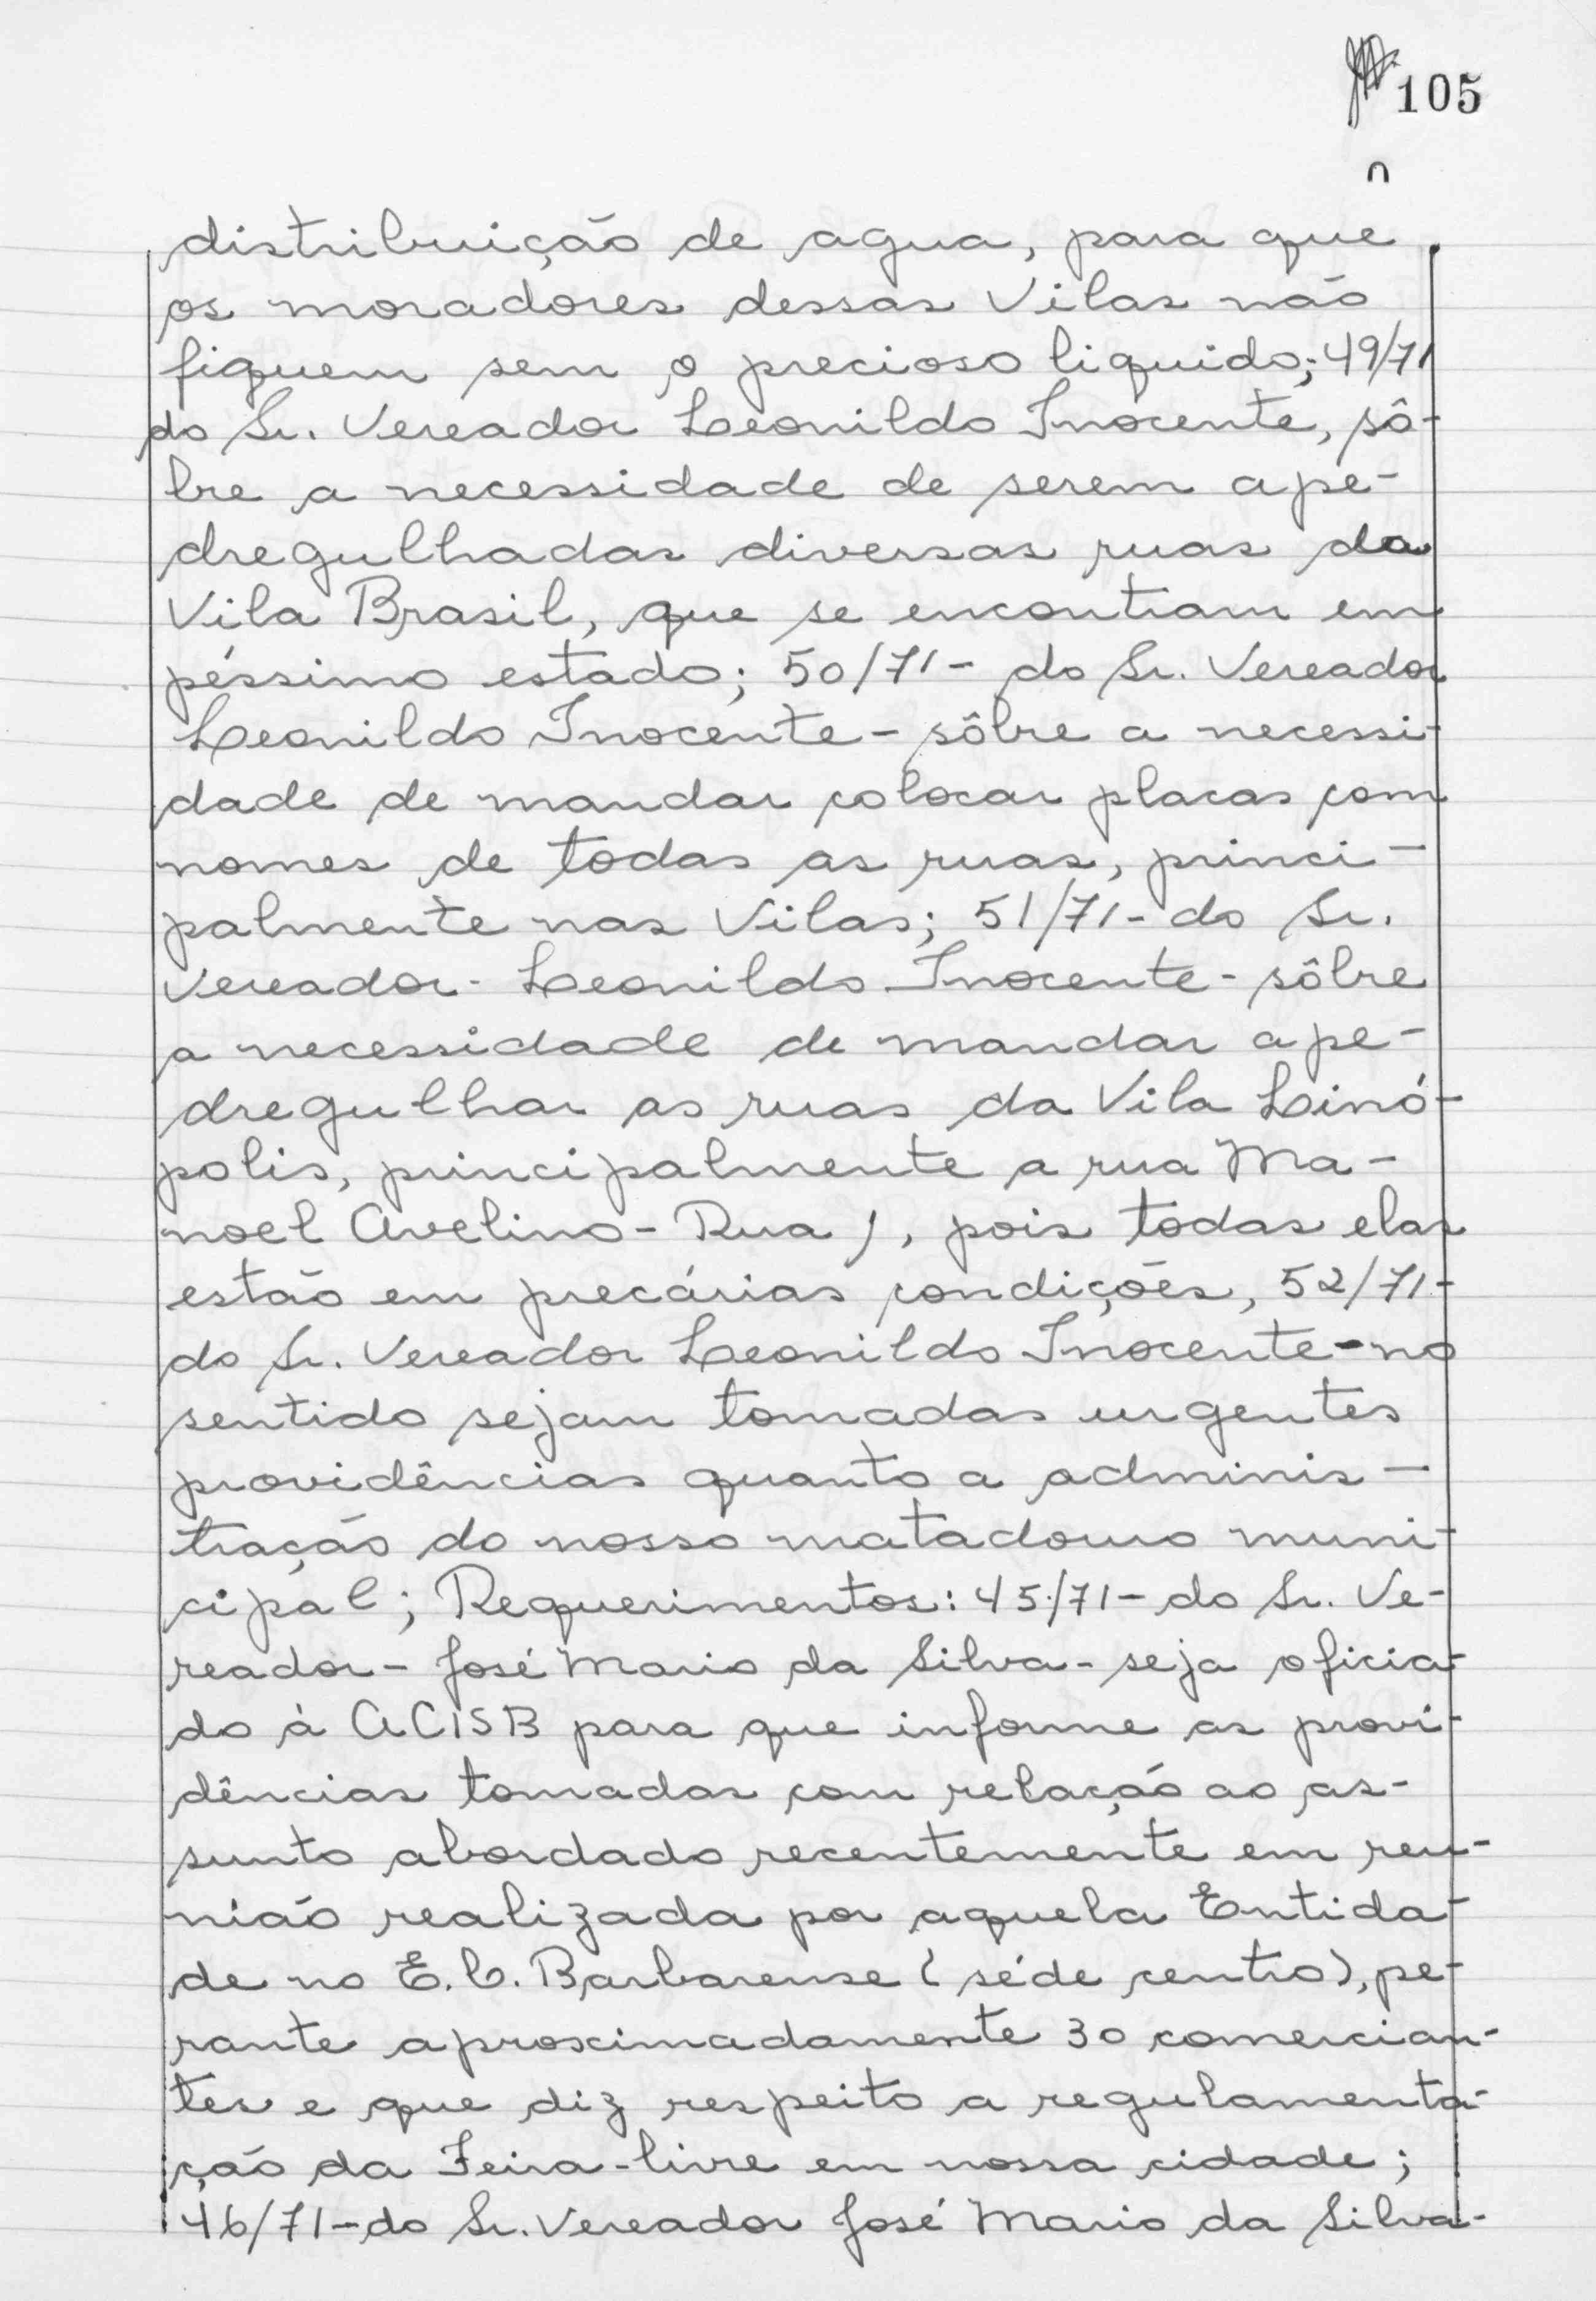 105
distribuição de agua, para que
os moradores dessas Vilas não
fiquem sem o precioso liquido; 49/71
do Sr. Vereador Leonildo Inocente, sô-
bre a necessidade de serem ape-
dregulhadas diversas ruas da
Vila Brasil, que se encontram em
péssimo estado; 50/71- do Sr. Vereador
Leonildo Inocente - sôbre a necessi-
dade de mandar colocar placas com
nomes de todas as ruas, princi-
palmente nas Vilas; 51/71- do Sr.
Vereador - Leonildo Inocente - sôbre
a necessidade de mandar ape-
dregulhar as ruas da Vila Linó-
polis, principalmente a rua Ma-
noel Avelino - Rua 1, pois todas elas
estão em precárias condições, 52/71-
do Sr. Vereador Leonildo Inocente - no
sentido sejam tomadas urgentes
providências quanto a adminis-
tração do nosso matadouro muni-
cipal; Requerimentos: 45/71- do Sr. Ve-
reador - José Mario da Silva - seja oficia-
do à ACISB para que informe as provi-
dências tomadas com relação ao as-
sunto abordado recentemente em reu-
nião realizada por aquela Entida-
de no E.C. Barbarense (séde centro), pe-
rante aproximadamente 30 comercian-
tes e que diz respeito a regulamenta-
ção da Feira-livre em nossa cidade;
46/71- do Sr. Vereador José Mario da Silva-